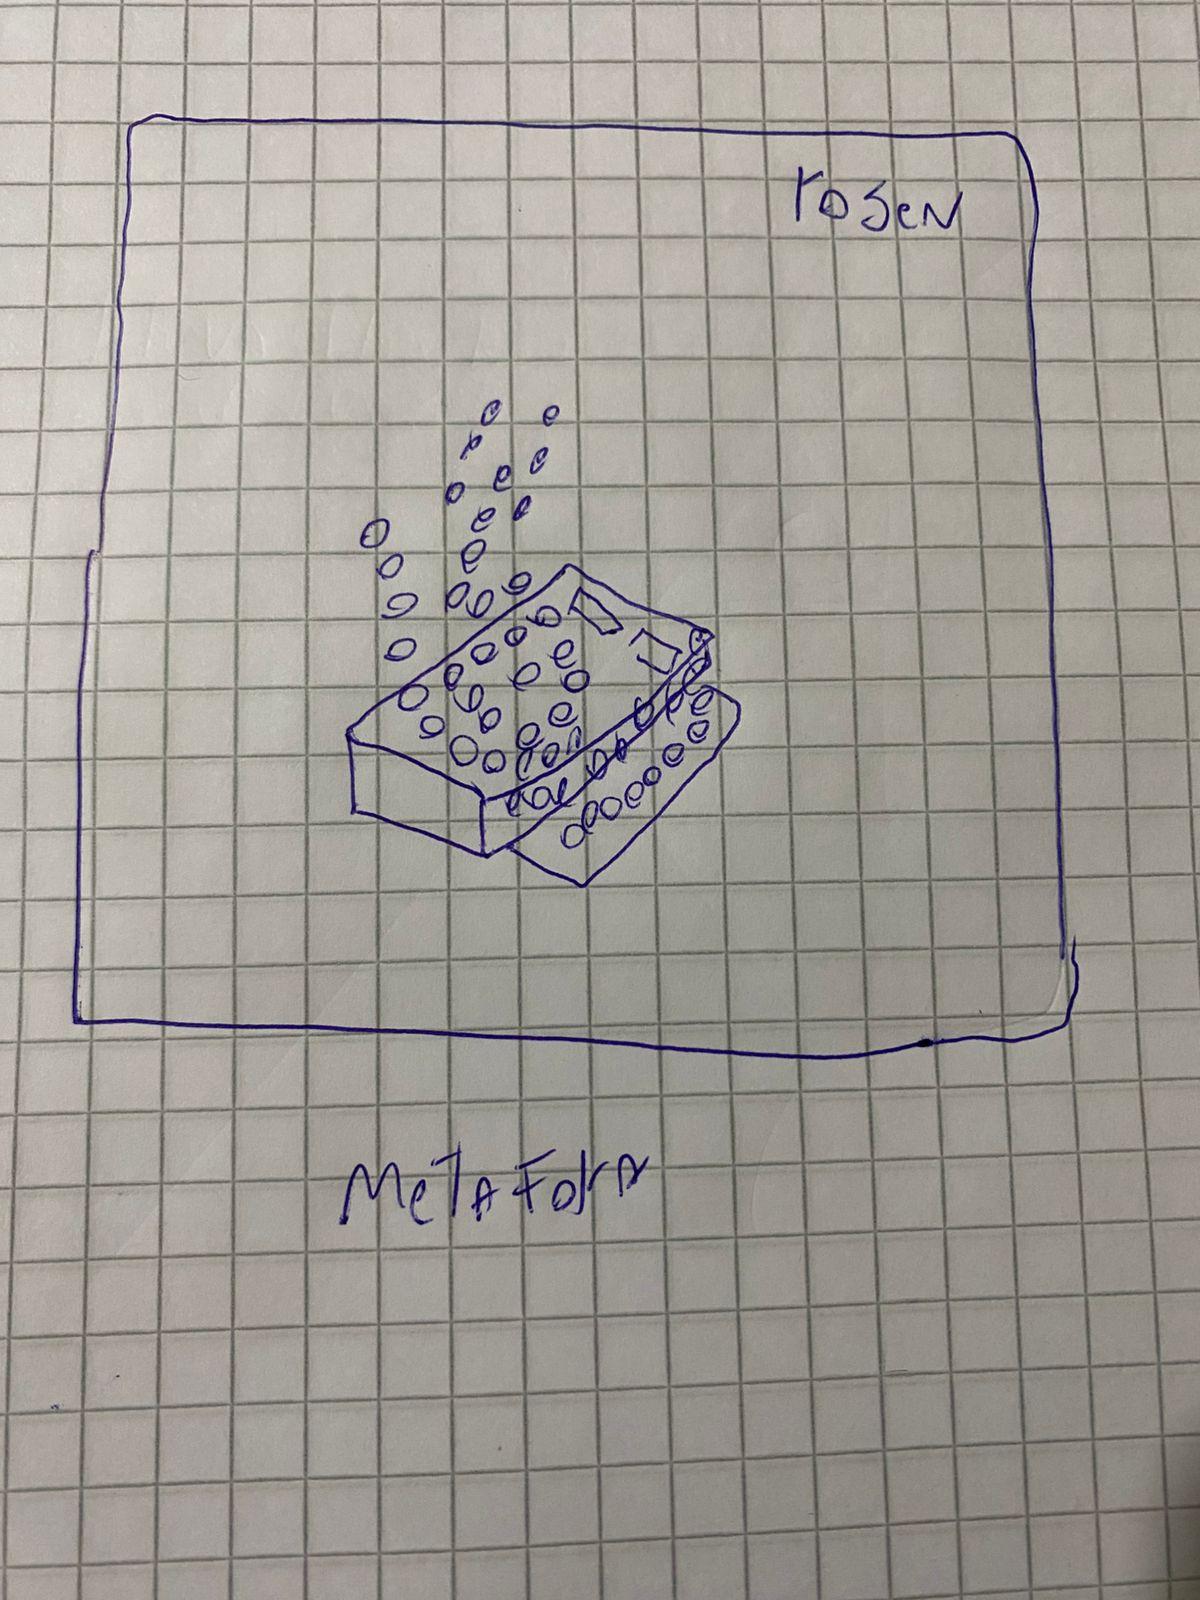 rosen
MeTAFOrA